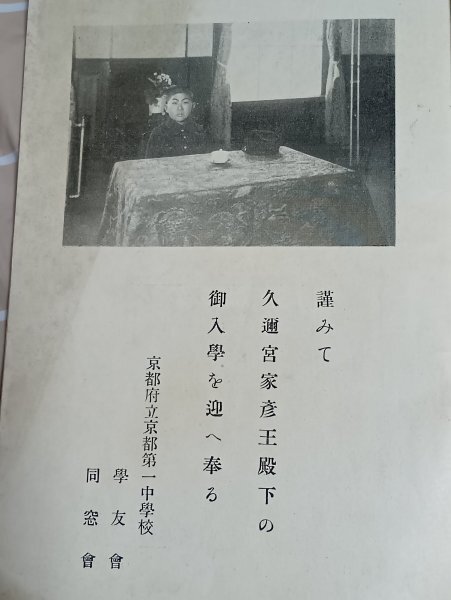 謹みて
久邇宮家彦王殿下の
御入學を迎へ奉る
京都府立京都第一中學校
學友會
同窓會